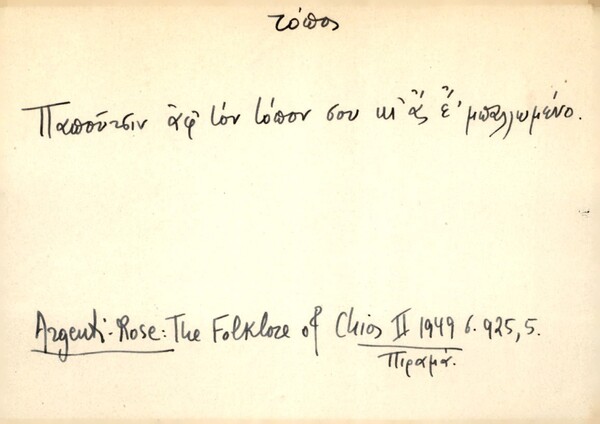 τόπος
Παπούτσιν ἀφ' τὸν τόπον σου κι' ἂς ἔ' μπαλλωμένο.
Argenti-Rose: The Folklore of Chios II 1949 σ. 925, 5.
Πιραμά.